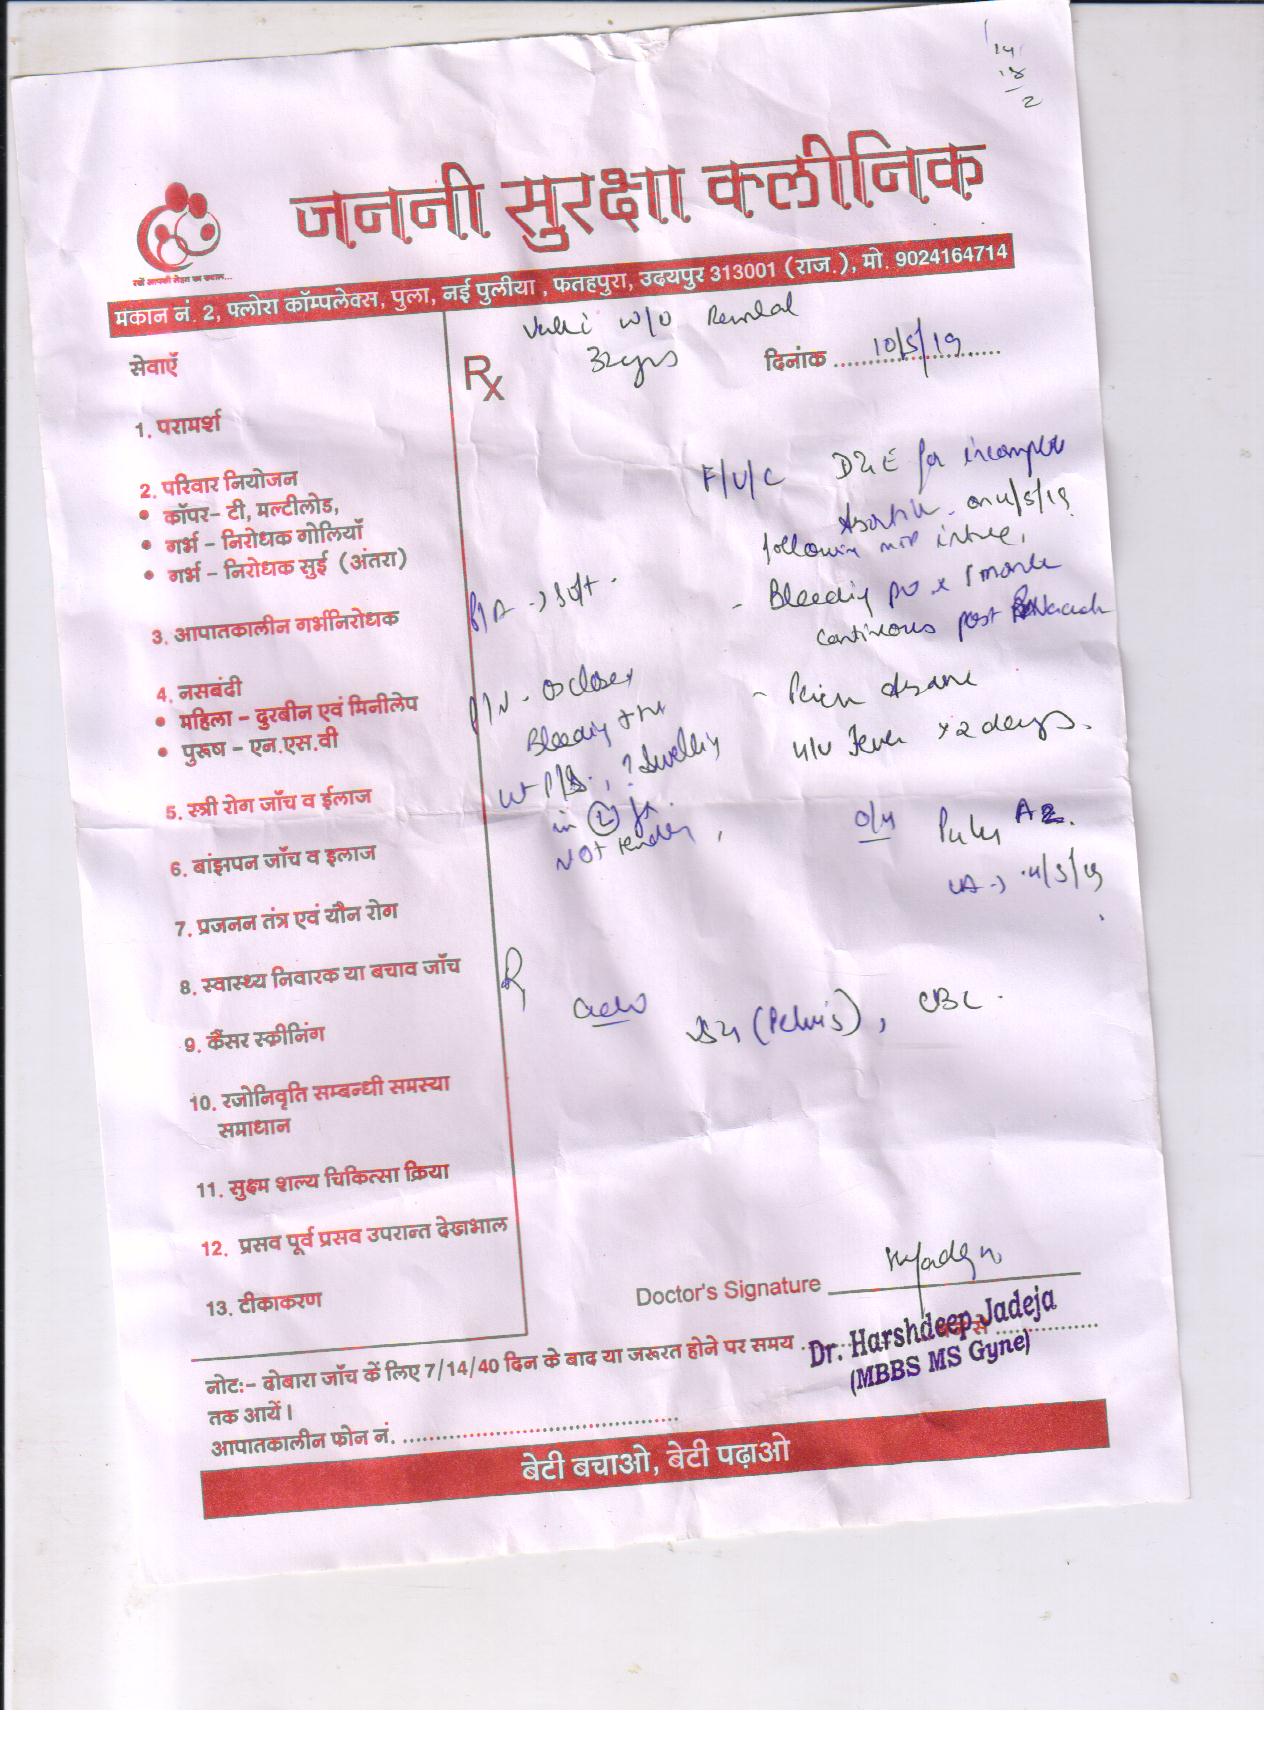 14
18
2
जननी सुरक्षा क्लीनिक
रखें आपकी सेहत का ख्याल...
मकान नं. 2, फ्लोरा कॉम्पलेक्स, पुला, नई पुलीया , फतहपुरा, उदयपुर 313001 (राज.), मो. 9024164714
w/o
Rx 32yrs दिनांक 10/5/19
सेवाएँ
1. परामर्श
2. परिवार नियोजन
• कॉपर– टी, मल्टीलोड,
• गर्भ – निरोधक गोलियाँ
• गर्भ – निरोधक सुई (अंतरा)
3. आपातकालीन गर्भनिरोधक
4. नसबंदी
• महिला – दुरबीन एवं मिनीलेप
• पुरूष – एन.एस.वी
5. स्त्री रोग जाँच व ईलाज
6. बांझपन जाँच व इलाज
7. प्रजनन तंत्र एवं यौन रोग
8. स्वास्थ्य निवारक या बचाव जाँच
9. कैंसर स्क्रीनिंग
10. रजोनिवृति सम्बन्धी समस्या
समाधान
11. सुक्ष्म शल्य चिकित्सा क्रिया
12. प्रसव पूर्व प्रसव उपरान्त देखभाल
13. टीकाकरण
F/U/C D&E for incomplete
following MTP
- Bleeding PV x 1 month
continuous post
- Pain
H/O Fever x 2 days.
P/A -> soft.
P/V - os closed
Bleeding
? Swelling
in (L) fx.
NOT tender,
O/H
Rx
Adv
(Pelvis), CBC.
Doctor's Signature
Dr. Harshdeep Jadeja
(MBBS MS Gyne)
नोटः– दोबारा जाँच कें लिए 7/14/40 दिन के बाद या जरूरत होने पर समय ........ से ........
तक आयें।
आपातकालीन फोन नं. ........
बेटी बचाओ, बेटी पढ़ाओ